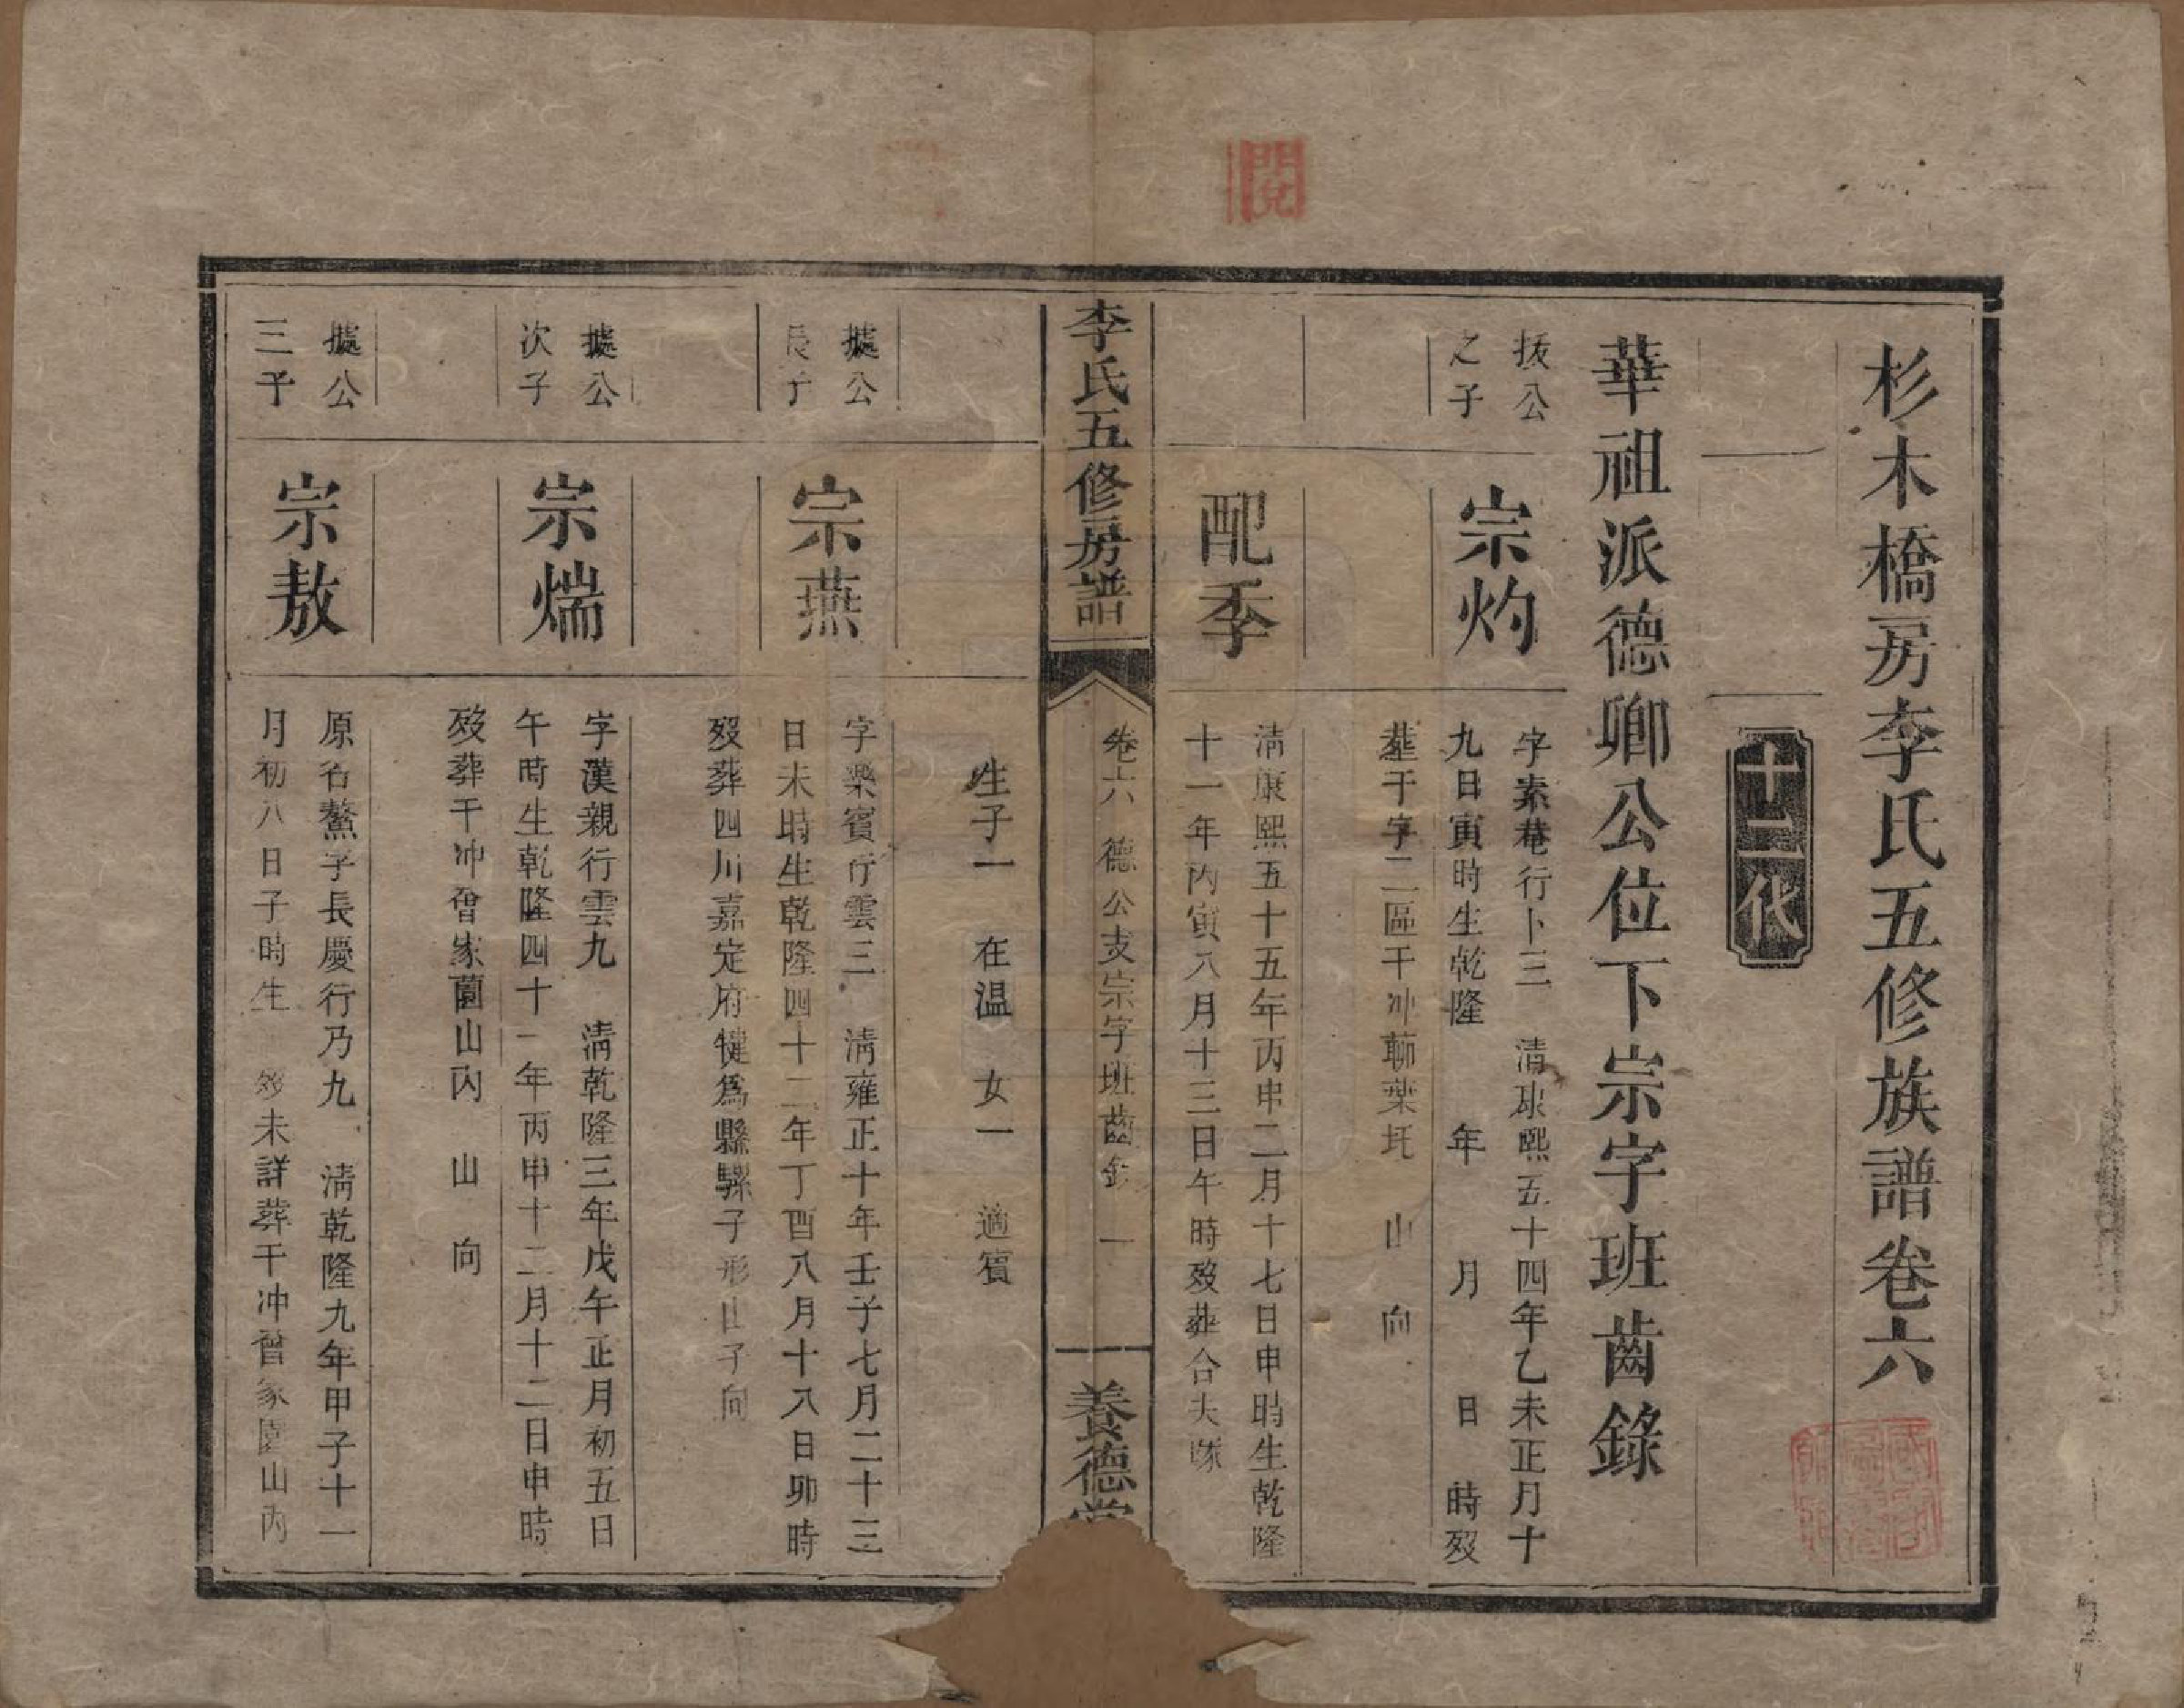 杉木橋房李氏五修族譜卷六
十二代
華祖派德卿公位下宗字班齒錄
拔公
之子
宗灼
字素菴行卜三　清康熙五十四年乙未正月十
九日寅時生乾隆　年　月　日　時歿
葬干字二區干冲聊葉坵　山　向
配季
清康熙五十五年丙申二月十七日申時生乾隆
十一年丙寅八月十三日午時歿葬合夫塚
李氏五修房譜
卷六　德公支宗字班齒錄　一
養德堂
生子一　在温　女一　適賓
據公
長子
宗燕
字樂賓行雲三　清雍正十年壬子七月二十三
日未時生乾隆四十二年丁酉八月十八日卯時
歿葬四川嘉定府犍爲縣騾子形山子向
據公
次子
宗煓
字漢親行雲九　清乾隆三年戊午正月初五日
午時生乾隆四十一年丙申十二月十二日申時
歿葬干冲曾家園山內　山　向
據公
三子
宗敖
原名鰲字長慶行乃九　清乾隆九年甲子十一
月初八日子時生　歿未詳葬干冲曾家園山內
閱